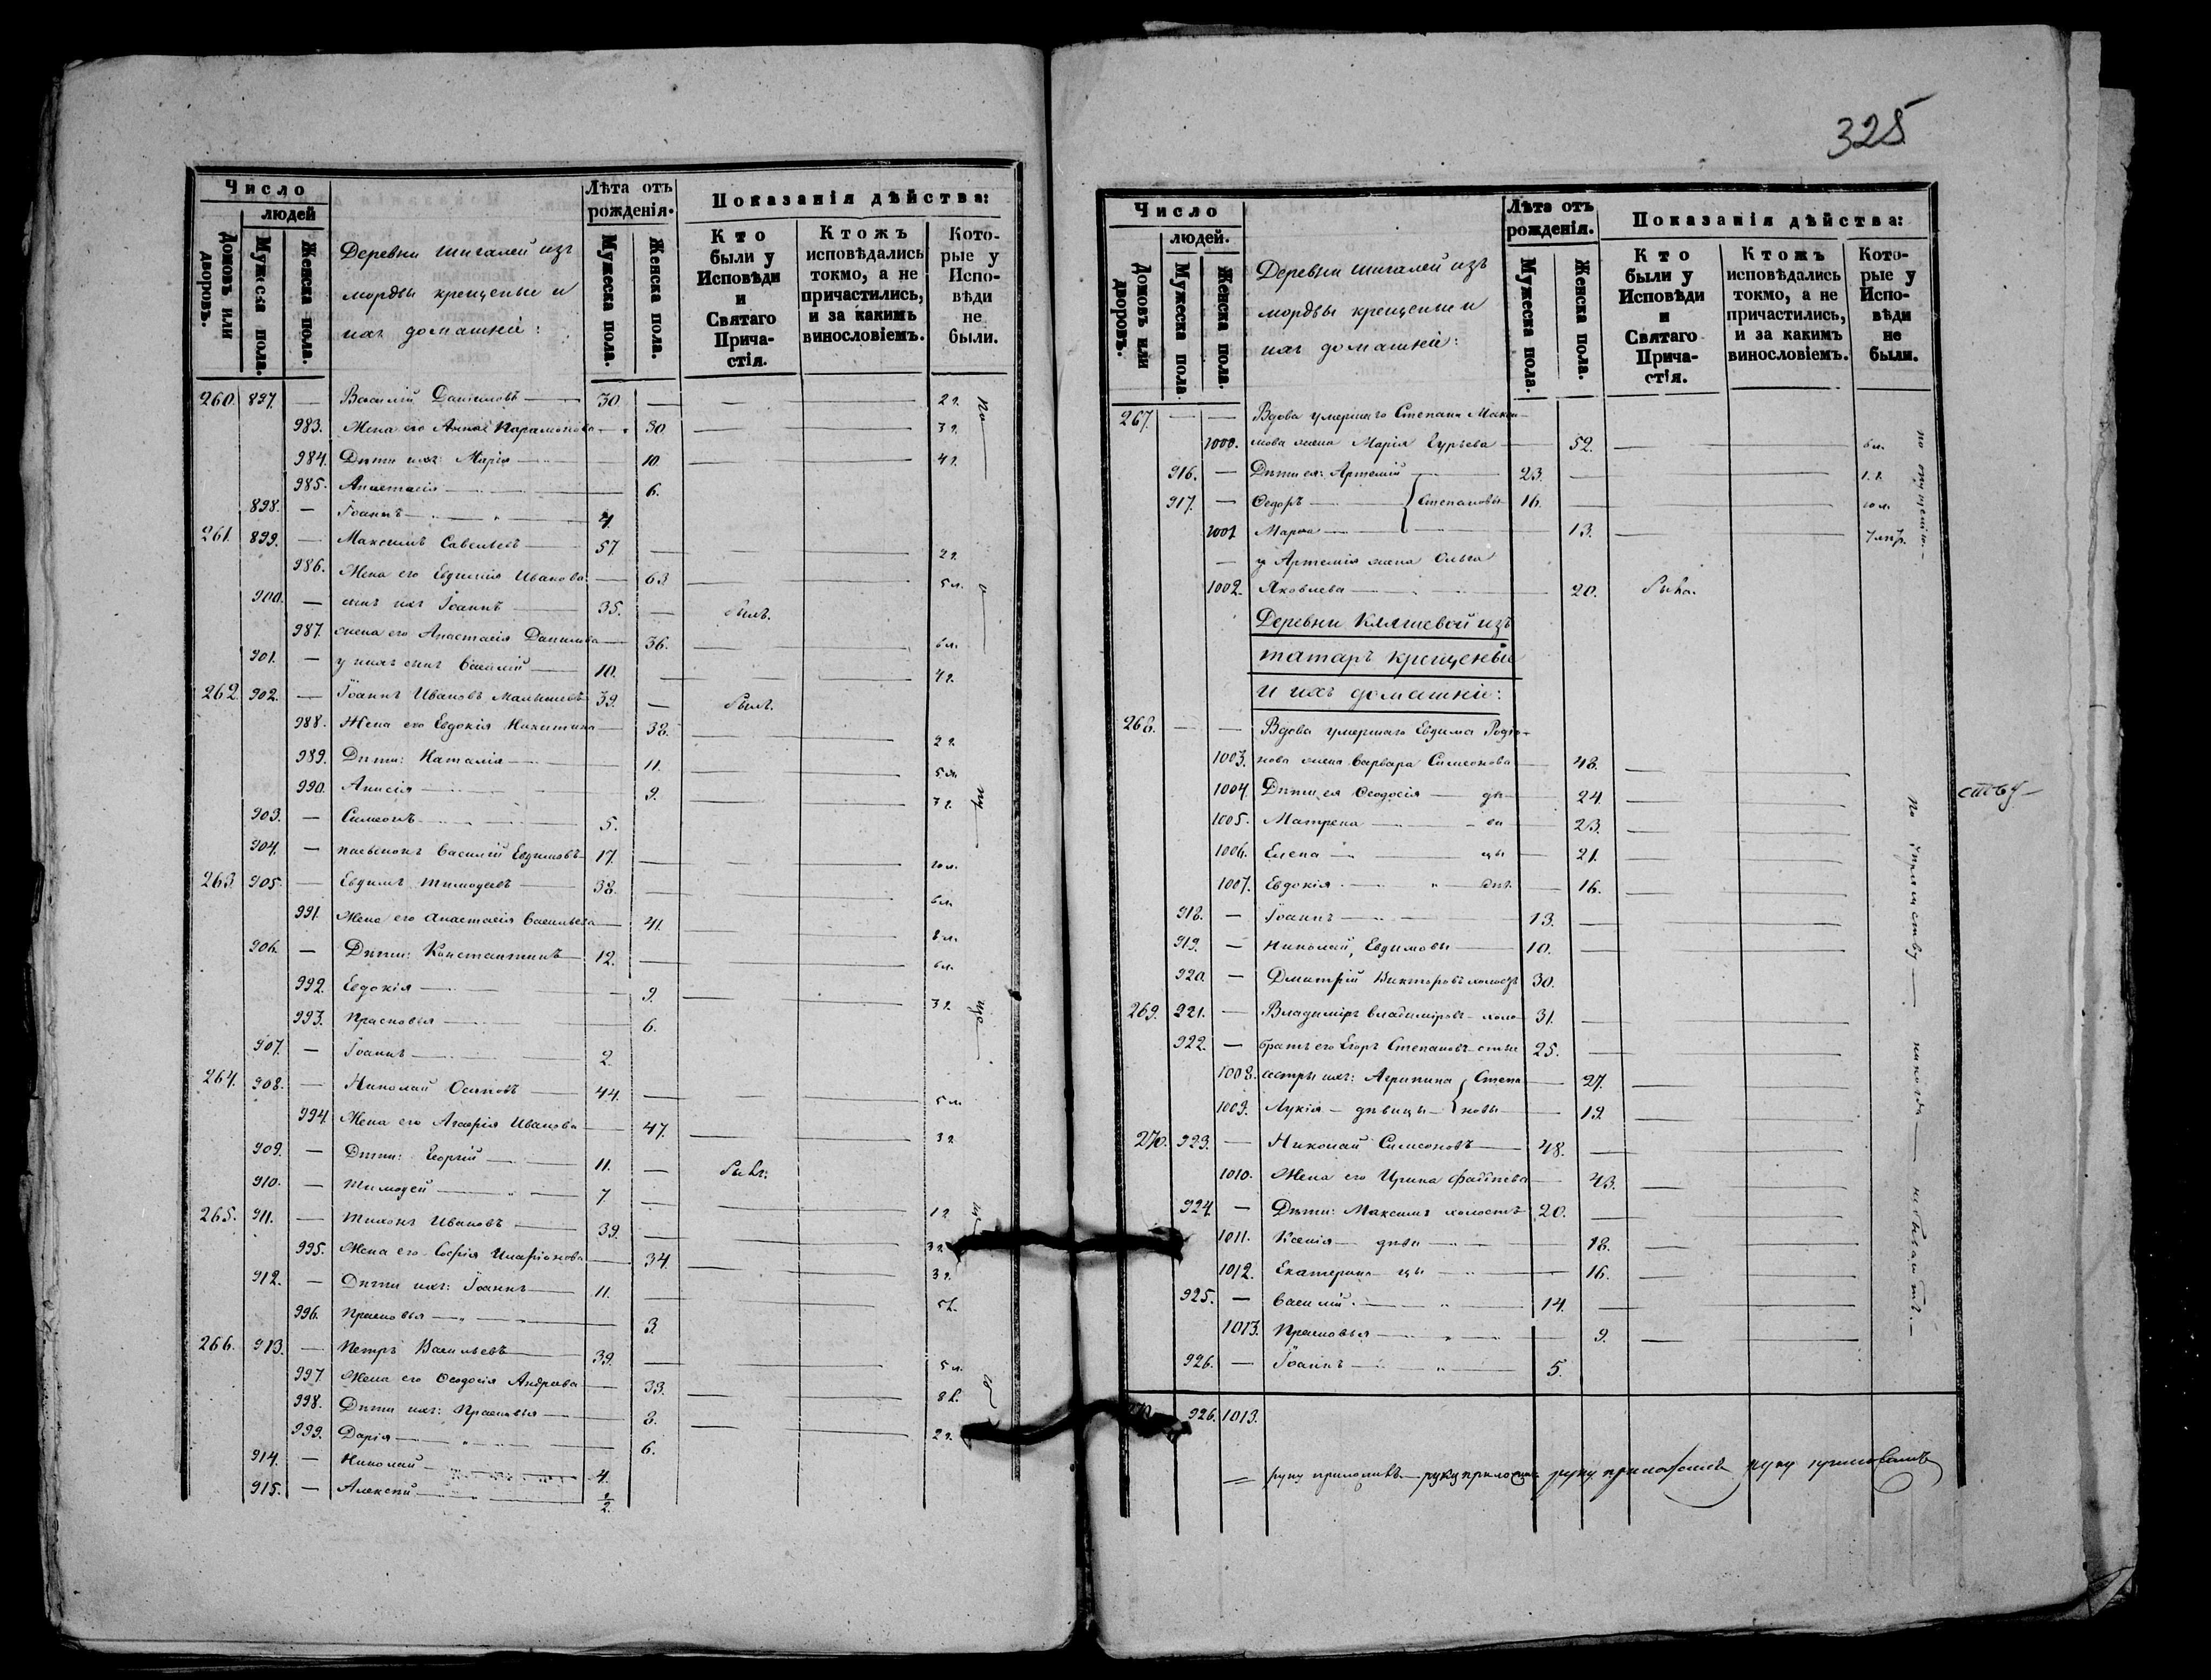 325
Число
людей
Домовъ или дворовъ.
Мужеска пола.
Женска пола.
Деревни Шигалей изъ
мордвы крещеные и
ихъ домашніе:
Лѣта отъ рожденія.
Мужеска пола.
Женска пола.
Показанія дѣйства:
Кто были у Исповѣди и Святаго Прича-стія.
Ктожъ исповѣдались токмо, а не причастились, и за какимъ винословіемъ.
Кото-рые у Испо-вѣди не были.
260. 897. — Василій Даниловъ — 30 — — — 2 г.
983. Жена его Анна Парамонова — 30. — — 3 г.
984. Дѣти ихъ: Марія — 10. — — 4 г.
985. Анастасія — 6.
898. — Іоаннъ — 4.
261. 899. — Максимъ Савельевъ — 57. — — — 2 г.
986. Жена его Евдокія Иванова — 63 — — 5 л.
900. — сынъ ихъ Іоаннъ — 35. — былъ.
987. жена его Анастасія Данилова — 36. — — 6 л.
901. — у нихъ сынъ Василій — 10. — — 4 г.
262. 902. — Іоаннъ Ивановъ Малышевъ 39. — былъ.
988. Жена его Евдокія Никитина — 38. — — 2 г.
989. Дѣти: Наталія — 11. — — 5 л.
990. Анисія — 9. — — 3 г.
903. — Симеонъ — 5.
904. — пасынокъ Василій Евдимовъ — 17. — — — 10 л.
263. 905. — Евдимъ Тимофеевъ — 38. — — 6 л.
991. Жена его Анастасія Васильева — 41. — — 8 л.
906. — Дѣти: Константинъ — 12. — — 6 л.
992. Евдокія — 9. — — 3 г.
993. Прасковья — 6.
907. — Іоаннъ — 2.
264. 908. — Николай Осиповъ — 44. — — — 5 л.
994. Жена его Агафія Иванова — 47. — — 3 г.
909. — Дѣти: Георгій — 11. — былъ.
910. — Тимофей — 7. — — 1 г.
265. 911. — Тихонъ Ивановъ — 39. — — 3 г.
995. Жена его Софія Иларіонова — 34. — — 3 г.
912. — Дѣти ихъ: Іоаннъ — 11. — — 5 л.
996. Прасковья — 3.
266. 913. — Петръ Васильевъ — 39. — — 5 л.
997 Жена его Ѳеодосія Андреева — 33. — — 8 л.
998. Дѣти ихъ: Прасковья — 8. — — 2 г.
999. Дарія — 6.
914. — Николай — 4.
915. — Алексѣй — 1/2.
Число
людей.
Домовъ или дворовъ.
Мужеска пола
Женска пола.
Деревни Шигалей изъ
мордвы крещеные и
ихъ домашніе:
Лѣта отъ рожденія.
Мужеска пола.
Женска пола.
Показанія дѣйства:
Кто были у Исповѣди и Святаго Прича-стія.
Ктожъ исповѣдались токмо, а не причастились, и за какимъ винословіемъ.
Кото-рые у Испо-вѣди не были.
267. — — Вдова умершаго Степана Макси-
1000. мова жена Марія Гурьева — 52. — — 6 л.
916. — Дѣти ея: Артемій — 23. — — 1 г.
917. — Ѳедоръ — Степановы 16. — — 10 л.
1001 Марѳа — 13. — —
— у Артемія жена Ольга
1002. Яковлева — 20. была.
по опущенію —
Деревни Кляшевой изъ
татаръ крещеные
и ихъ домашніе:
268. — — Вдова умершаго Евдима Родіо-
1003. нова жена Варвара Симеонова — 48. — —
1004. Дѣти ея Ѳеодосія — дѣ — 24. — —
1005. Матрена — ви — 23. — —
1006. Елена — цы — 21. — —
1007. Евдокія — 16. — —
918. — Іоаннъ — 13. — —
919. — Николай, Евдимовы — 10. — —
920. — Дмитрій Викторовъ холостъ 30.
269. 921. — Владиміръ Владиміровъ — холо 31. — —
922. — братъ его Егоръ Степановъ — стые 25. — —
1008. сестры ихъ: Агрипина Степа — 27. — —
1009. Лукія — дѣвицы — новы — 19. — —
270. 923. — Николай Симеоновъ — 48. — —
1010. Жена его Ирина Фадѣева — 43. — —
924. — Дѣти: Максимъ холостъ 20. — —
1011. Ксенія — дѣви — 18. — —
1012. Екатерина — цы — 16. — —
925. — Василій — 14. — —
1013. Прасковья — 9. — —
926. — Іоаннъ — 5.
по упрямству — никогда — не бываютъ. —
926. 1013.
руку приложилъ — руку приложилъ руку приложилъ руку приложилъ